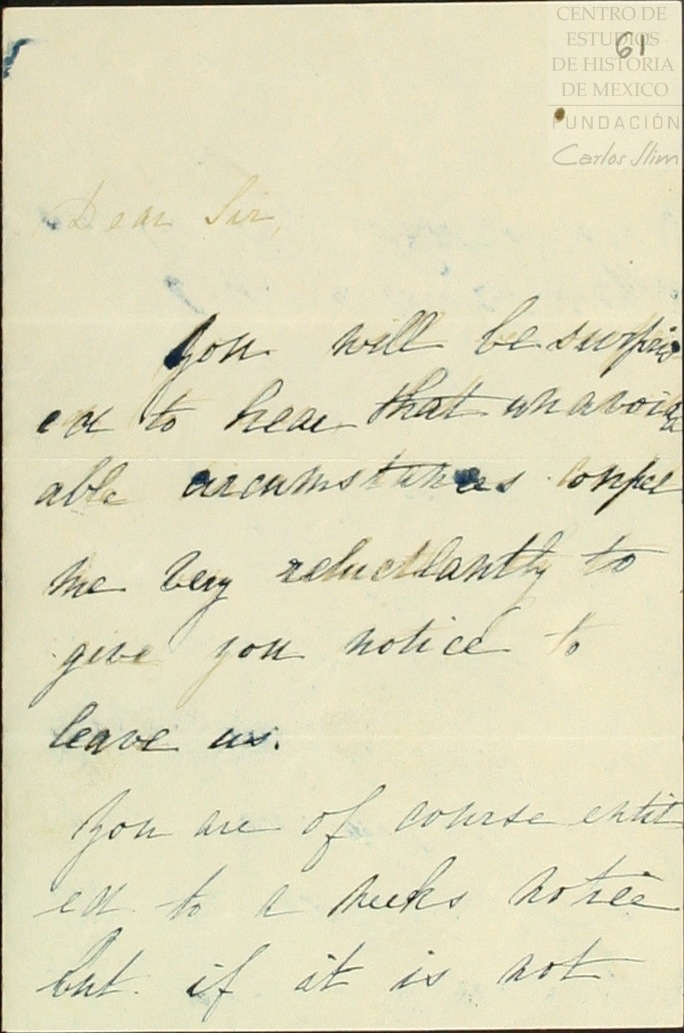 CENTRO DE
ESTUDIOS
DE HISTORIA
DE MEXICO
FUNDACIÓN
Carlos Slim
61
Dear Sir,
You will be surpris
ed to hear that unavoid
able circumstances compel
me very reluctlantly to
give you notice to
leave us.
You are of course entit
ed to a weeks notice
but if it is not